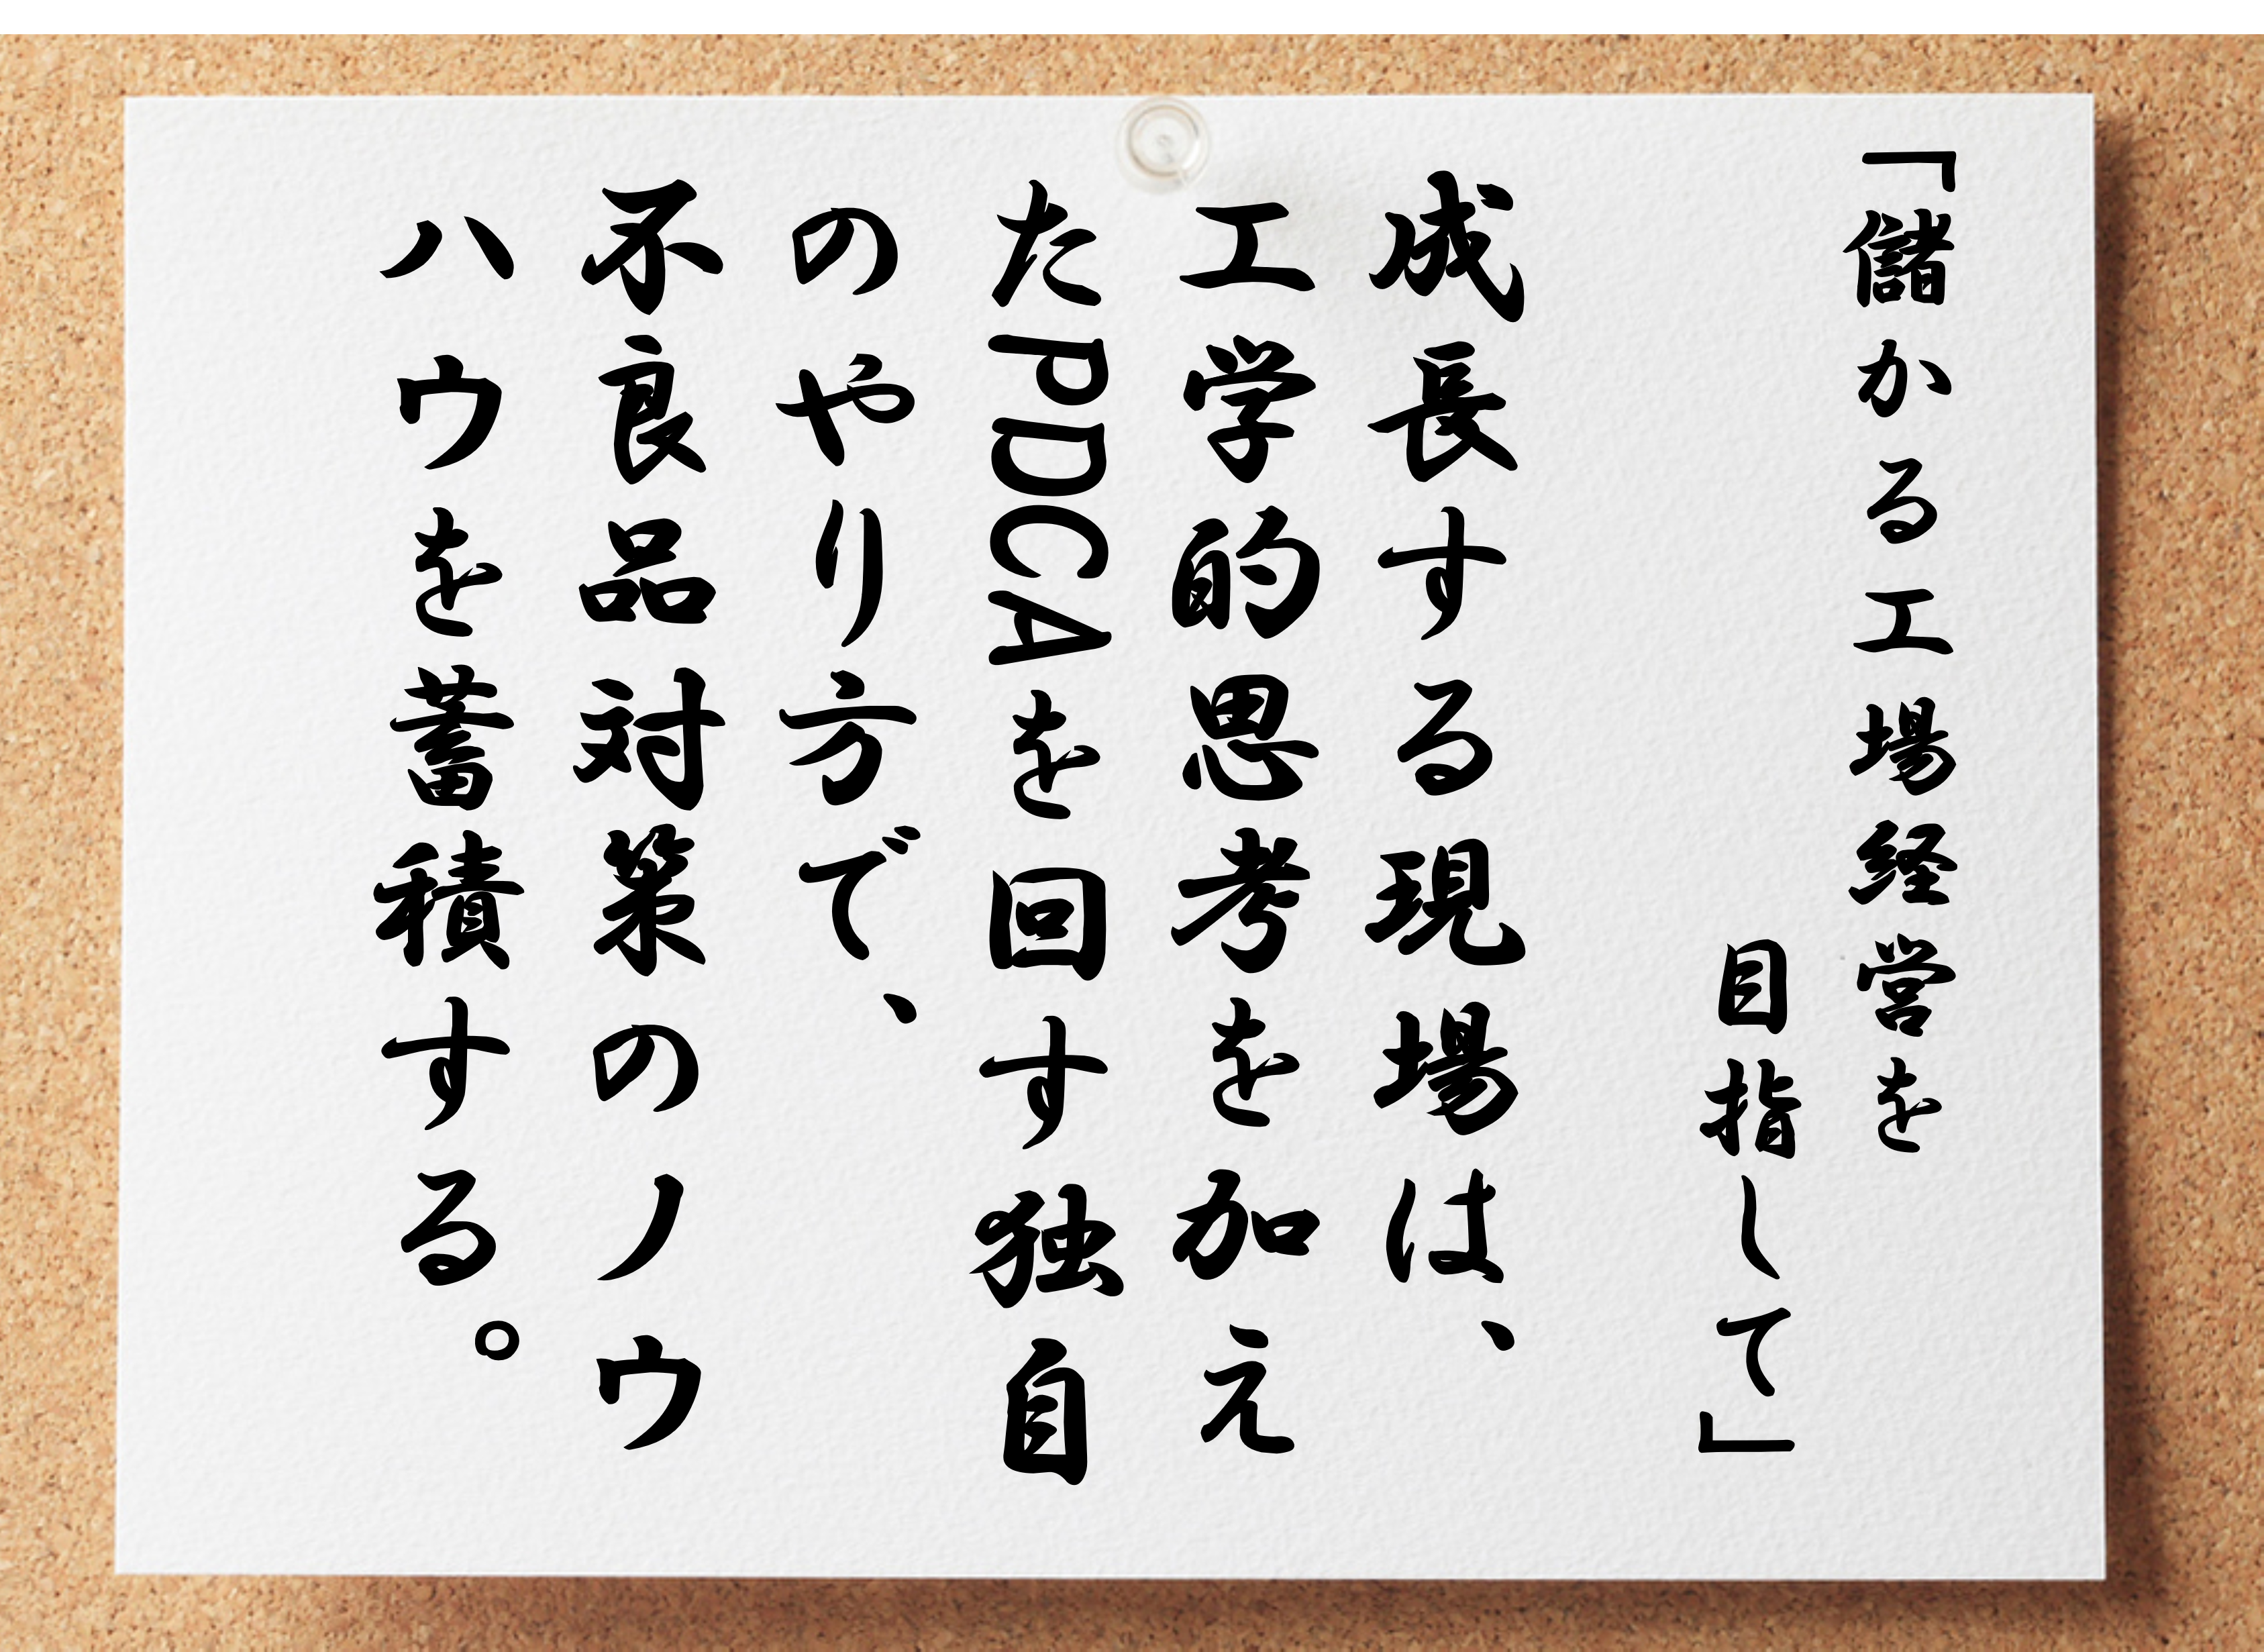 「儲かる工場経営を
目指して」
成長する現場は、
工学的思考を加え
たPDCAを回す独自
のやり方で、
不良品対策のノウ
ハウを蓄積する。